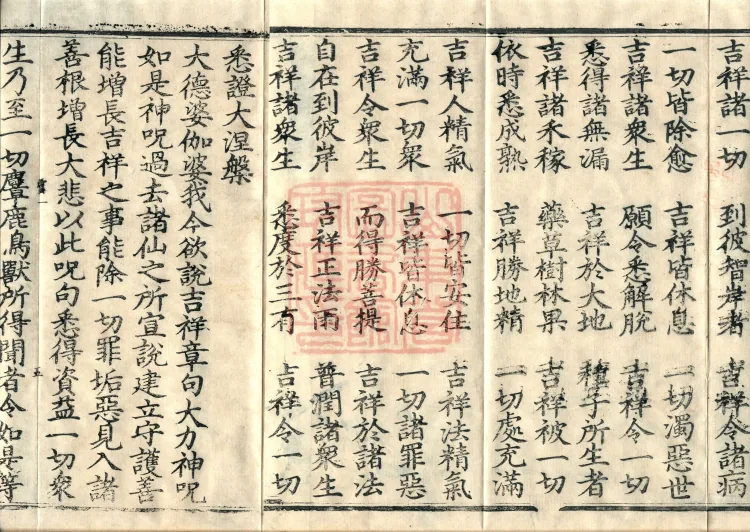 吉祥諸一切 到彼智岸者 吉祥令諸病
一切皆除愈 吉祥皆休息 一切濁惡世
吉祥諸衆生 願令悉解脫 吉祥令一切
悉得諸無漏 吉祥於大地 種子所生者
吉祥諸禾稼 藥草樹林果 吉祥被一切
依時悉成熟 吉祥勝地精 一切處充滿
吉祥人精氣 一切皆安住 吉祥法精氣
充滿一切衆 吉祥皆休息 一切諸罪惡
吉祥令衆生 而得勝菩提 吉祥於諸法
自在到彼岸 吉祥正法雨 普潤諸衆生
吉祥諸衆生 悉度於三有 吉祥令一切
悉證大涅槃
大德婆伽婆我今欲說吉祥章句大力神呪
如是神呪過去諸仙之所宣說建立守護善
能增長吉祥之事能除一切罪垢惡見入諸
善根增長大悲以此呪句悉得資益一切衆
五
生乃至一切麞鹿鳥獸所得聞者令如是等